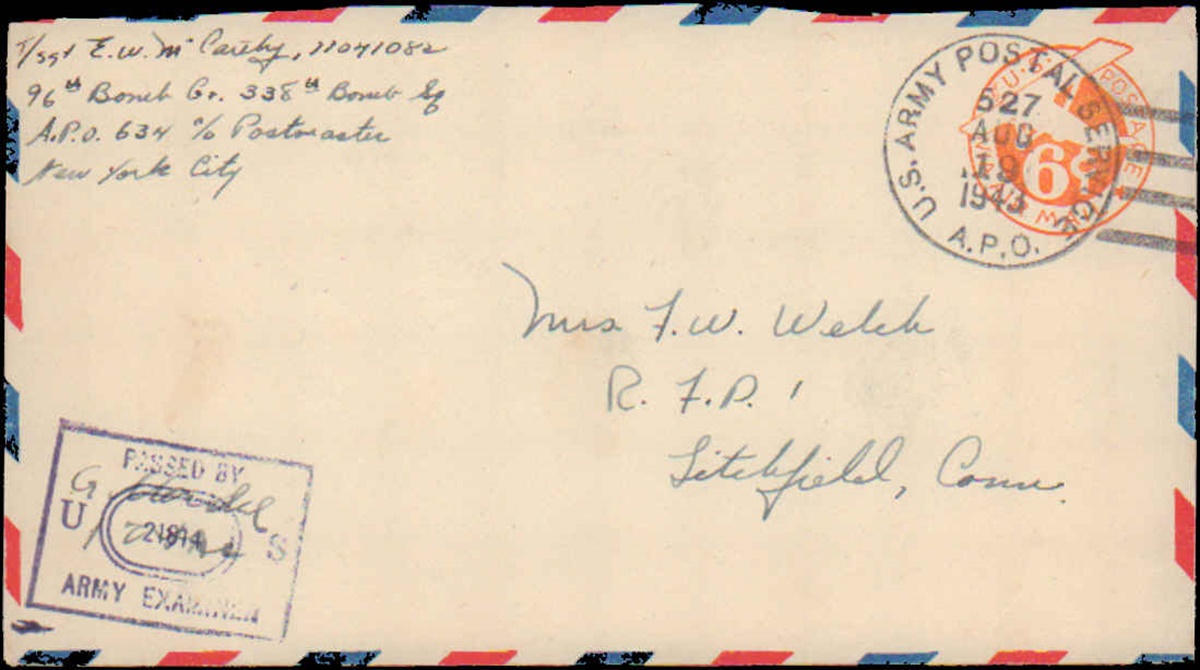 T/Sgt E.W. McCarthy, 11041082
96th Bomb Gr. 338th Bomb Sq
A.P.O. 634 c/o Postmaster
New York City
U.S. ARMY POSTAL SERVICE
A.P.O.
527
AUG
19
1943
U.S. POSTAGE
6¢
Mrs F.W. Welch
R. F.D. 1
Litchfield, Conn.
PASSED BY
U 21814 S
ARMY EXAMINER